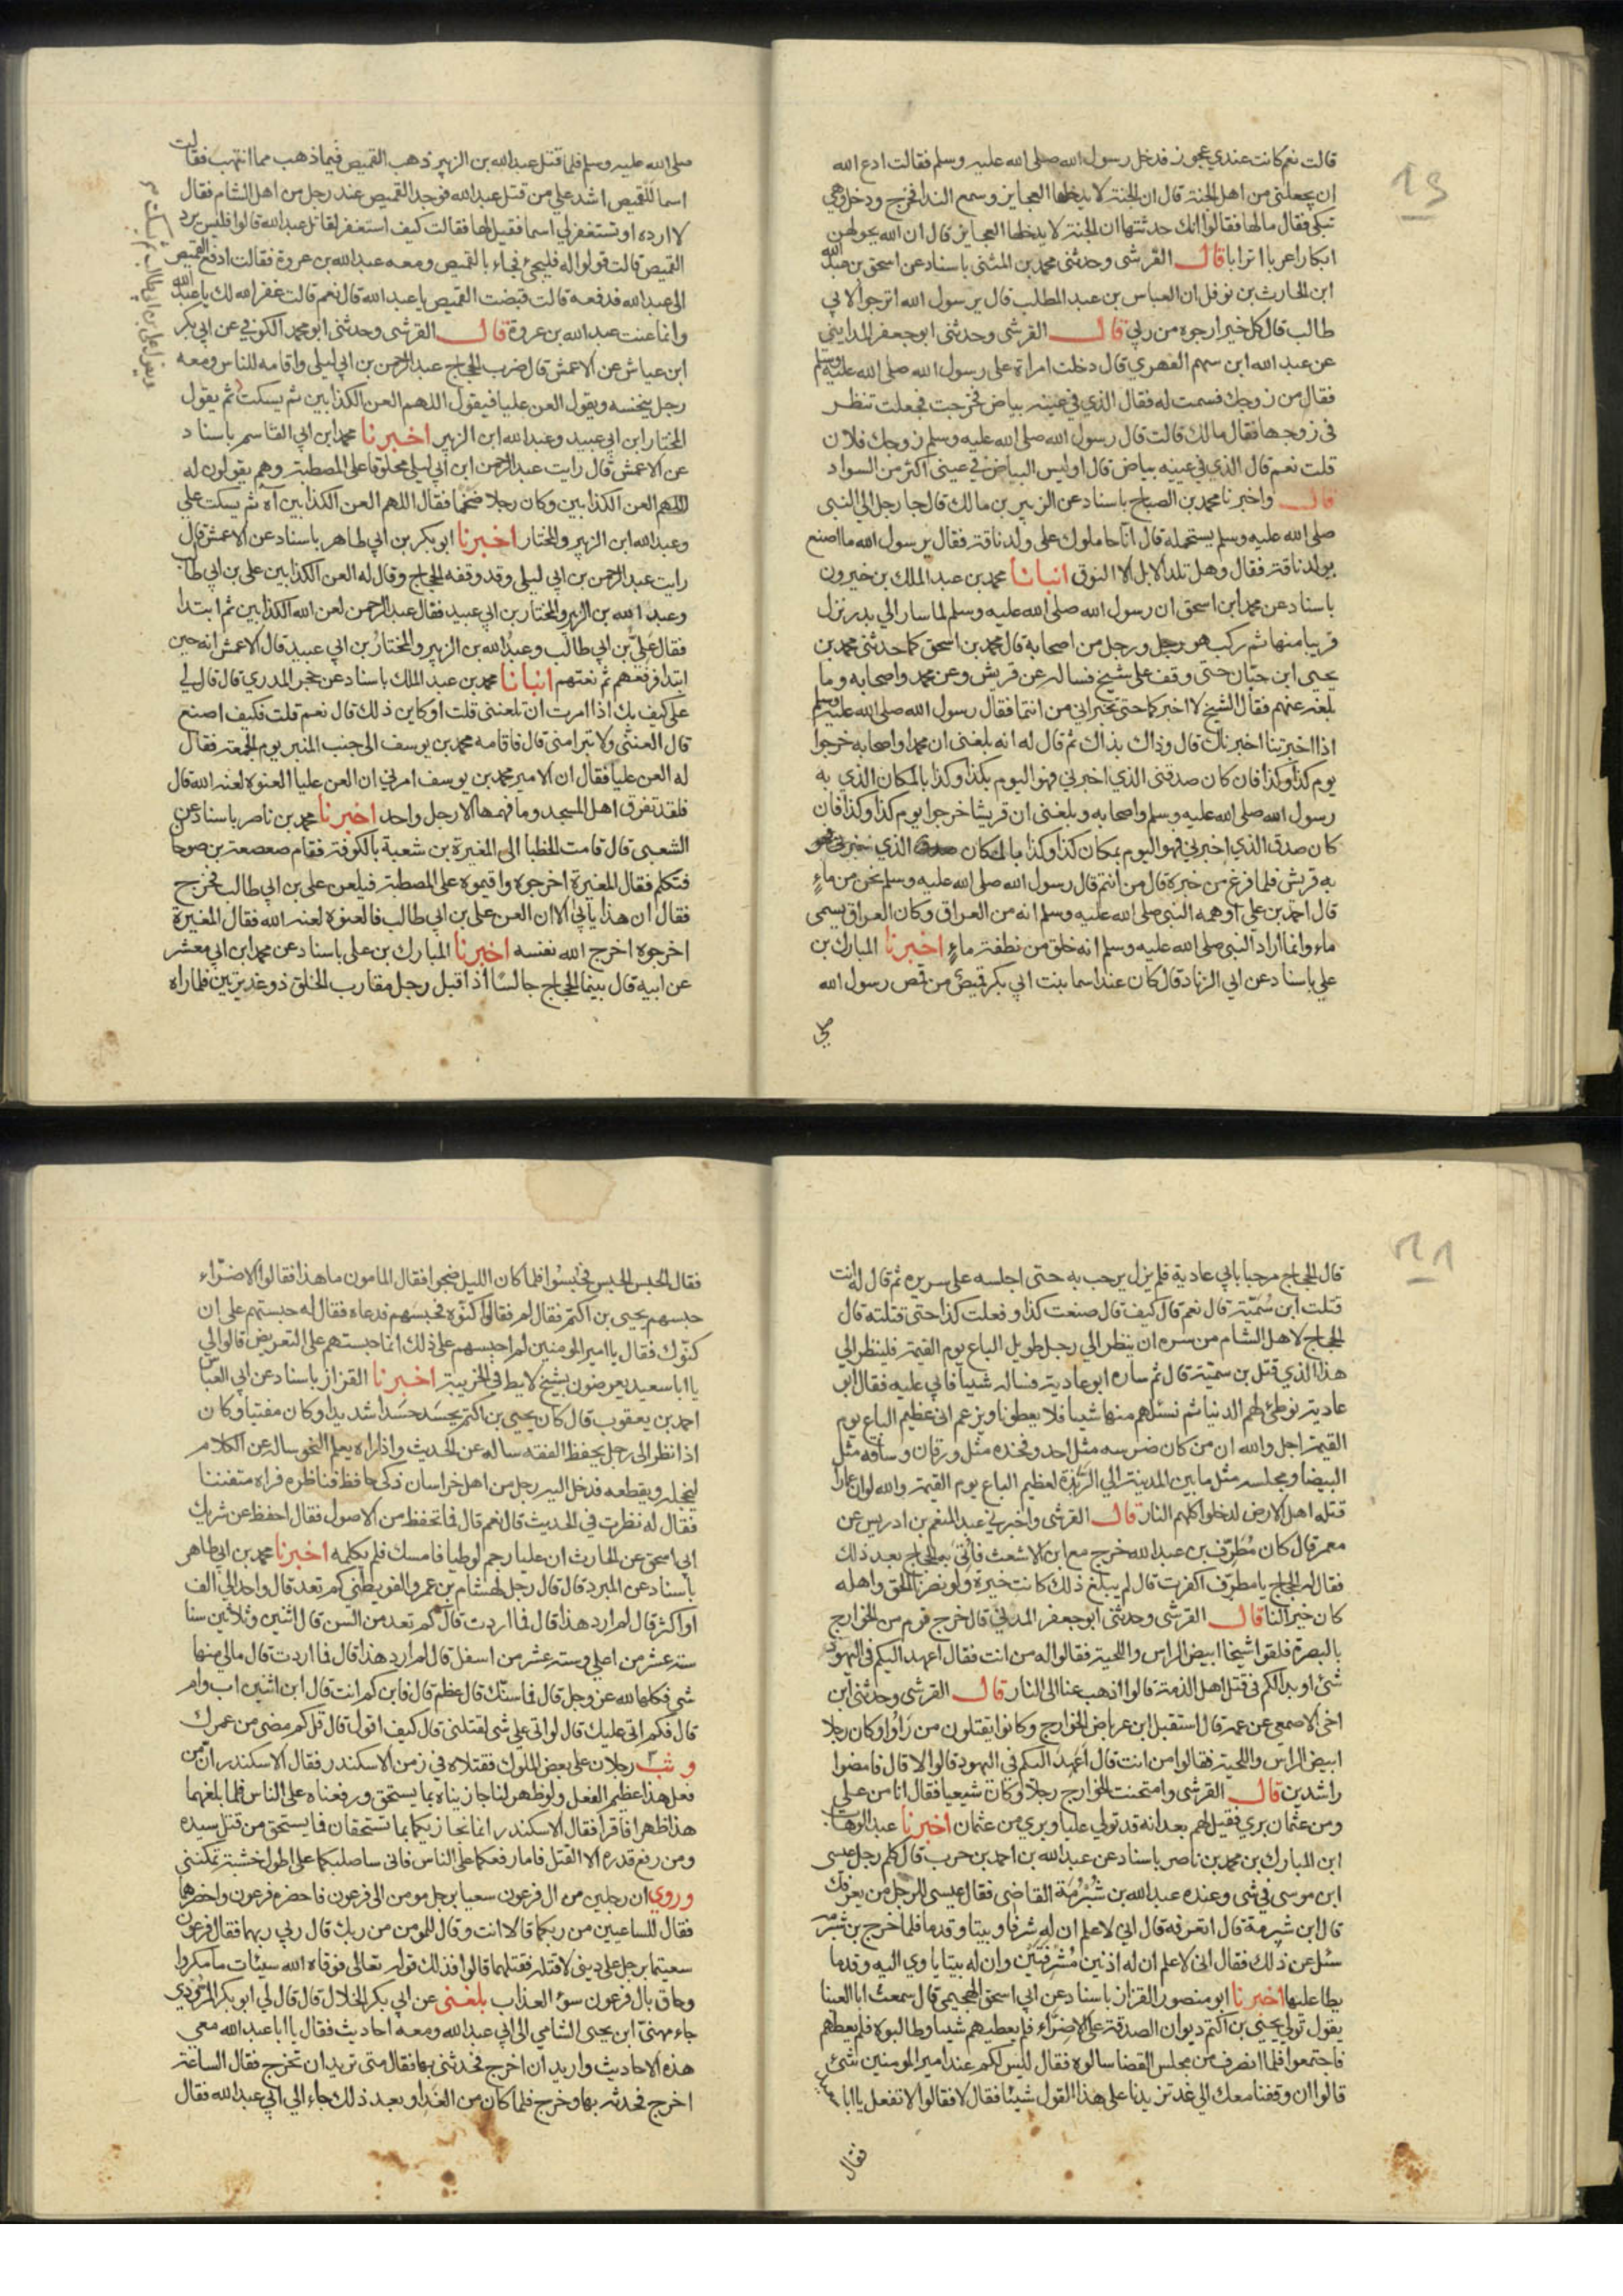 19
قالت نعم كانت عندي عجوز فدخل رسول الله صلى الله عليه وسلم فقالت ادع الله
ان يجعلني من اهل الجنة قال ان الجنة لا يدخلها العجايز وسمع الندا فخرج ودخل وهي
تبكي فقال مالها فقالوا انك حدثتها ان الجنة لا يدخلها العجايز قال ان الله يحولهن
ابكارا عربا اترابا قال القرشي وحدثني محمد بن المثنى باسناد عن اسحق بن عبد الله
ابن الحارث بن نوفل ان العباس بن عبد المطلب قال يرسول الله اترجو لابي
طالب قال كل خير ارجوه من ربي قال القرشي وحدثني ابو جعفر المدايني
عن عبد الله ابن سهم الفهري قال دخلت امراة على رسول الله صلى الله عليه وسلم
فقال من زوجك فسمت له فقال الذي في عينه بياض فخرجت فجعلت تنظر
في زوجها فقال مالك قالت قال رسول الله صلى الله عليه وسلم زوجك فلان
قلت نعم قال الذي في عينيه بياض قال اوليس البياض في عيني اكثر من السواد
قال واخبرنا محمد بن الصباح باسناد عن الزبير بن مالك قال جا رجل الي النبي
صلى الله عليه وسلم يستحمله قال انا حاملوك على ولد ناقة فقال يرسول الله ما اصنع
بولد ناقة فقال وهل تلد الابل الا النوق انبانا محمد بن عبد الملك بن خيرون
باسناد عن محمد ابن اسحق ان رسول الله صلى الله عليه وسلم لما سار الي بدر نزل
قريبا منها ثم ركب هو ورجل ورجل من اصحابه قال محمد بن اسحق كما حدثني محمد بن
يحيى ابن حبان حتى وقف على شيخ فساله عن قريش وعن محمد واصحابه وما
بلغه عنهم فقال الشيخ لا اخبركما حتى تخبراني من انتما فقال رسول الله صلى الله عليه وسلم
اذا اخبرتنا اخبرناك قال وذاك بذاك ثم قال له انه بلغني ان محمدا واصحابه خرجوا
يوم كذا وكذا فان كان صدقني الذي اخبرني فهو اليوم بكذا وكذا بالمكان الذي به
رسول الله صلى الله عليه وسلم واصحابه وبلغني ان قريشا خرجوا يوم كذا وكذا فان
كان صدق الذي اخبرني فهو اليوم بمكان كذا وكذا بالمكان الذي
به قريش فلما فرغ من خبره قال من انتم قال رسول الله صلى الله عليه وسلم نحن من ماء
قال احمد بن علي اوهمه النبي صلى الله عليه وسلم انه من العراق وكان العراق يسمى
ماء وانما اراد النبي صلى الله عليه وسلم انه خلق من نطفة ماء اخبرنا المبارك بن
علي باسناد عن ابي الزناد قال كان عند اسما بنت ابي بكر قميص من قمص رسول الله
صلى
صلى الله عليه وسلم فلما قتل عبد الله بن الزبير ذهب القميص فيما ذهب مما انتهب فقالت
اسما للقميص اشد علي من قتل عبد الله فوجد القميص عند رجل من اهل الشام فقال
لا ارده او تستغفر لي اسما فقيل لها فقالت كيف استغفر لقاتل عبد الله قالوا فليس يرد
القميص قالت قولوا له فليجئ فجاء بالقميص ومعه عبد الله بن عروة فقالت ادفع القميص
الى عبد الله فدفعه قالت قبضت القميص يا عبد الله قال نعم قالت غفر الله لك يا عبد الله
وانما عنت عبد الله بن عروة قال القرشي وحدثني ابو محمد الكوفي عن ابي بكر
ابن عياش عن الاعمش قال ضرب الحجاج عبد الرحمن بن ابي ليلى واقامه للناس ومعه
رجل ينخسه ويقول العن عليا فيقول اللهم العن الكذابين ثم يسكت ثم يقول
المختار ابن ابي عبيد وعبد الله ابن الزبير اخبرنا محمد ابن ابي القاسم باسناد
عن الاعمش قال رايت عبد الرحمن ابن ابي ليلى محلوقا على المصطبة وهم يقولون له
اللهم العن الكذابين وكان رجلا ضخما فقال اللهم العن الكذابين آه ثم يسكت علي
وعبد الله ابن الزبير والمختار اخبرنا ابو بكر بن ابي طاهر باسناد عن الاعمش قال
رايت عبد الرحمن بن ابي ليلى وقد وقفه الحجاج وقال له العن الكذابين علي بن ابي طالب
وعبد الله بن الزبير والمختار بن ابي عبيد فقال عبد الرحمن لعن الله الكذابين ثم ابتدا
فقال علي بن ابي طالب وعبد الله بن الزبير والمختار بن ابي عبيد قال الاعمش انه حين
ابتدا فرفعهم ثم نعتهم انبانا محمد بن عبد الملك باسناد عن حجر المدري قال قال لي
علي كيف بك اذا امرت ان تلعنني قلت او كاين ذلك قال نعم قلت فكيف اصنع
قال العنّي ولا تبرا مني قال فاقامه محمد بن يوسف الى جنب المنبر يوم الجمعة فقال
له العن عليا فقال ان الامير محمد بن يوسف امرني ان العن عليا العنوه لعنه الله قال
فلقد تفرق اهل المسجد وما فهمها الا رجل واحد اخبرنا محمد بن ناصر باسناد عن
الشعبي قال قامت الخطبا الى المغيرة بن شعبة بالكوفة فقام صعصعة بن صوحا
فتكلم فقال المغيرة اخرجوه واقيموه على المصطبة فيلعن علي بن ابي طالب فخرج
فقال ان هذا يابي الا ان العن علي بن ابي طالب فالعنوه لعنه الله فقال المغيرة
اخرجوه اخرج الله نفسه اخبرنا المبارك بن علي باسناد عن محمد ابن ابي معشر
عن ابيه قال بينما الحجاج جالسا اذ اقبل رجل مقارب الخلق ذو غديرتين فلما راه
قال الحجاج مرحبا بابي عادية فلم يزل يرحب به حتى اجلسه على سريره ثم قال له انت
قتلت ابن سمية قال نعم قال كيف قال صنعت كذا وفعلت كذا حتى قتلته قال
الحجاج لاهل الشام من سره ان ينظر الي رجل طويل الباع يوم القيمة فلينظر الي
هذا الذي قتل بن سمية قال ثم ساره ابو عادية فساله شيا فابى عليه فقال ابو
عادية نوطئ لهم الدنيا ثم نسئلهم منها شيا فلا يعطونا ويزعم اني عظيم الباع يوم
القيمة اجل والله ان من كان ضرسه مثل احد وفخذه مثل ورقان وساقه مثل
البيضا ومجلسه مثل ما بين المدينة الي الربذة لعظيم الباع يوم القيمة والله لو ان عمارا
قتله اهل الارض لدخلوا كلهم النار قال القرشي واخبرني عبد المنعم بن ادريس عن
معمر قال كان مطرف بن عبد الله خرج مع ابن الاشعث فاتي به الحجاج بعد ذلك
فقال له الحجاج يا مطرف اكفرت قال لم يبلغ ذلك كانت خيرة ولو نصرنا الحق واهله
كان خيرا لنا قال القرشي وحدثني ابو جعفر المدني قال خرج قوم من الخوارج
بالبصرة فلقوا شيخا ابيض الراس واللحية فقالوا له من انت فقال اعهد اليكم في اليهود
شئ او بدا لكم في قتل اهل الذمة قالوا اذهب عنا الى النار قال القرشي وحدثني ابن
اخي الاصمعي عن عمه قال استقبل ابن عرباض الخوارج وكانوا يقتلون من راوا وكان رجلا
ابيض الراس واللحية فقالوا من انت قال اعهد اليكم في اليهود قالوا لا قال فامضوا
راشدين قال القرشي وامتحنت الخوارج رجلا وكان شيعيا فقال انا من علي
ومن عثمان بري فقيل لهم بعد انه قد تولي عليا وبري من عثمان اخبرنا عبد الوهاب
ابن المبارك بن محمد بن ناصر باسناد عن عبد الله بن احمد بن حرب قال كلم رجل عيسى
ابن موسى في شي وعنده عبد الله بن شبرمة القاضي فقال عيسى للرجل من يعرفك
قال ابن شبرمة قال اتعرفه قال اني لاعلم ان له شرفا وبيتا وقدما فلما خرج بن شبرمة
سئل عن ذلك فقال اني لاعلم ان له اذنين مشرفتين وان له بيتا ياوي اليه وقدما
يطا عليها اخبرنا ابو منصور القزاز باسناد عن ابي اسحق الهجيمي قال سمعت ابا العينا
يقول تولي يحيي بن اكثم ديوان الصدقة على الاضراء فلم يعطيهم شيا وطالبوه فلم يعطهم
فاجتمعوا فلما انصرف من مجلس القضا سالوه فقال ليس لكم عند امير المومنين شئ
قالوا ان وقفنا معك الي غد تزيدنا على هذا القول شيئا فقال لا فقالوا لا تفعل يا ابا
فقال
فقال الحبس الحبس فحبسوا فلما كان الليل ضجوا فقال المامون ما هذا فقالوا الاضراء
حبسهم يحيي بن اكثم فقال لم فقالوا كنّوه فحبسهم فدعاه فقال له حبستهم على ان
كنوك فقال يا امير المومنين لم احبسهم على ذلك انما حبستهم على التعريض قالوا لي
يا ابا سعيد يعرضون بشيخ لايط في الخريبة اخبرنا القزاز باسناد عن ابي العباس
احمد بن يعقوب قال كان يحيي بن اكثم يحسد حسدا شديدا وكان مفتيا وكان
اذا نظر الى رجل يحفظ الفقه ساله عن الحديث واذا راه يعلم النحو ساله عن الكلام
ليخجله ويقطعه فدخل اليه رجل من اهل خراسان ذكي حافظ فناظره فراه متفننا
فقال له نظرت في الحديث قال نعم قال فما تحفظ من الاصول فقال احفظ عن شريك
عن ابي اسحق عن الحارث ان عليا رجم لوطيا فامسك فلم يكلمه اخبرنا محمد بن ابي طاهر
باسناد عن المبرد قال قال رجل لهشام بن عمرو الفوطي كم تعد قال واحد الي الف
او اكثر قال لم ارد هذا قال فما اردت قال كم تعد من السن قال اثنين وثلاثين سنا
ستة عشر من اعلي وستة عشر من اسفل قال لم ارد هذا قال فما اردت قال مالي منها
شي فكلها لله عز وجل قال فما سنّك قال عظم قال فابن كم انت قال ابن اثنين اب وام
قال فكم اتي عليك قال لو اتي علي شي لقتلني قال كيف اقول قال قل كم مضى من عمرك
وثب رجلان على بعض الملوك فقتلاه في زمن الاسكندر فقال الاسكندر ان من
فعل هذا عظيم الفعل ولو ظهر لنا جازيناه بما يستحق ورفعناه على الناس فلما بلغهما
هذا ظهرا فاقرا فقال الاسكندر انا نجازيكما بما تستحقان فما يستحق من قتل سيده
ومن رفع قدره الا القتل فاما رفعكما على الناس فاني ساصلبكما على اطول خشبة تمكنني
وروي ان رجلين من ال فرعون سعيا برجل مومن الى فرعون فاحضره فرعون واحضرهما
فقال للساعيين من ربكما قالا انت وقال للمومن من ربك قال ربي ربهما فقال فرعون
سعيتما برجل على ديني لاقتله فقتلهما قالوا فذلك قوله تعالى فوقاه الله سيئات ما مكروا
وحاق بال فرعون سوء العذاب بلغني عن ابي بكر الخلال قال قال لي ابو بكر المروذي
جاء مهنى ابن يحيى الشامي الى ابي عبد الله ومعه احاديث فقال يا ابا عبد الله معي
هذه الاحاديث واريد ان اخرج فحدثني بها فقال متى تريد ان تخرج فقال الساعة
اخرج فحدثه بها وخرج فلما كان من الغد او بعد ذلك جاء الي ابي عبد الله فقال